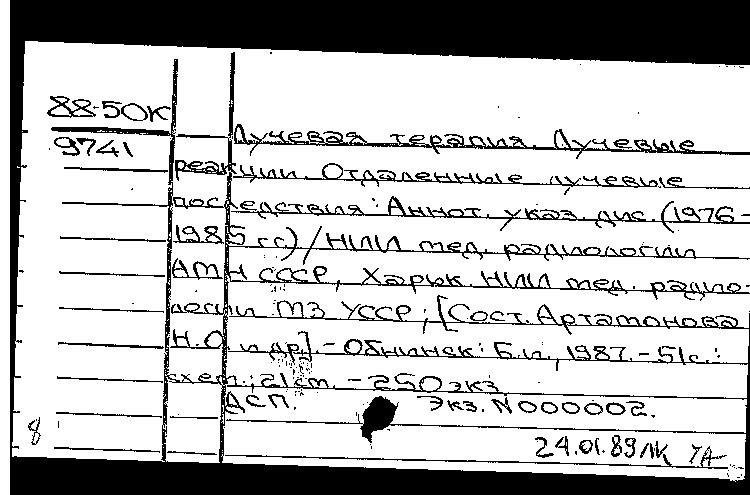 88-50К
9741
Лучевая терапия. Лучевые
реакции. Отдаленные лучевые
последствия: Аннот. указ. дис. (1976-
1985 гг.) / НИИ мед. радиологии
АМН СССР, Харьк. НИИ мед. радио-
логии МЗ УССР; [Сост. Артамонова
Н.О. и др]. - Обнинск: Б.и., 1987. - 51с.:
схем.; 21см. - 250 экз.
ДСП. Экз. N000002.
8 24.01.89 ЛК